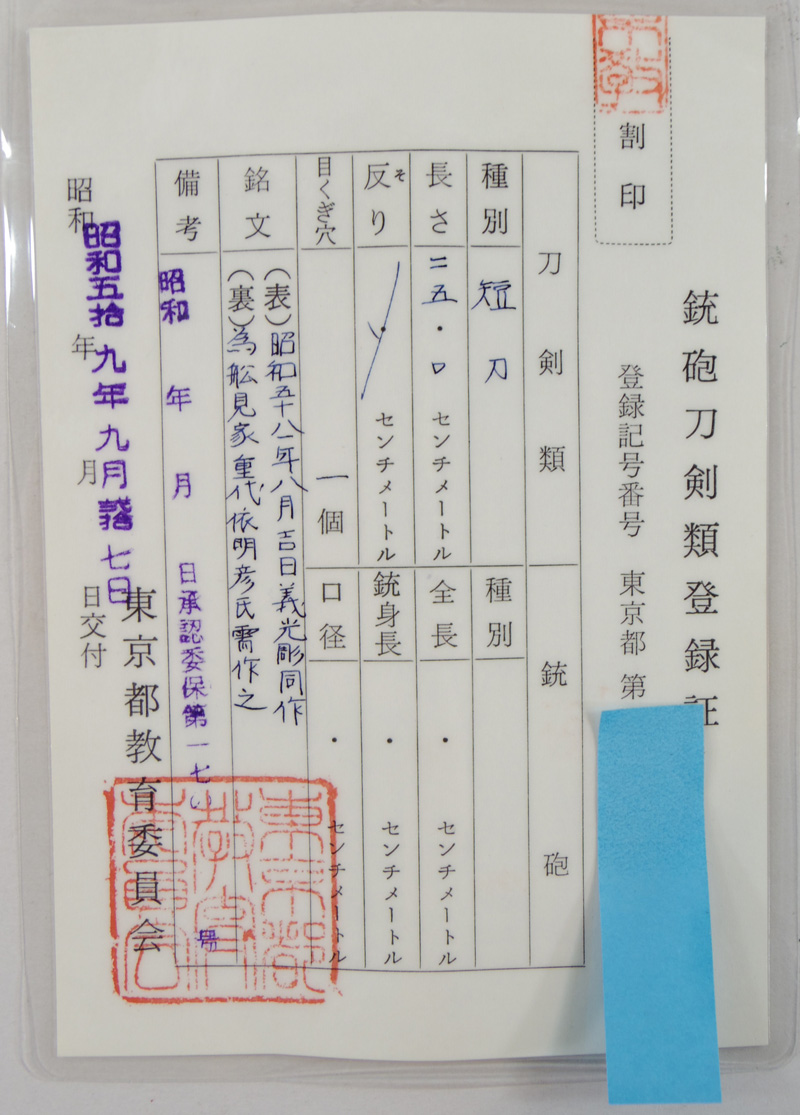 割印
銃砲刀剣類登録証
登録記号番号 東京都 第
刀剣類
銃砲
種別 短刀
種別
長さ 二五・〇 センチメートル
全長 ・ センチメートル
反り そ ・ センチメートル
銃身長 ・ センチメートル
目くぎ穴 一個
口径 ・ センチメートル
銘文
(表)昭和五十八年八月吉日義光彫同作
(裏)為舩見家重代依明彦氏需作之
備考
昭和 年 月 日承認委保第一七
東京都教育委員会
昭和 年 月 日交付
昭和五拾九年九月 七日